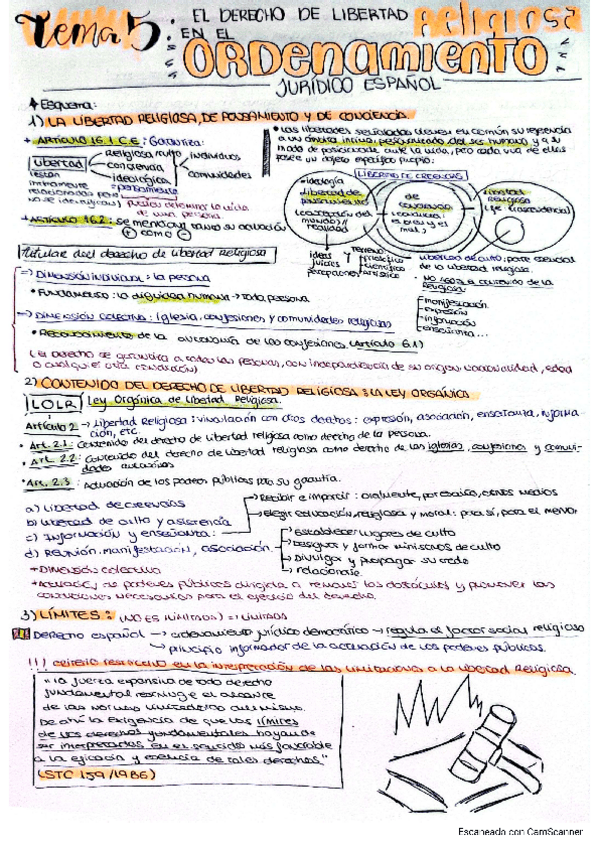 Tema 5: EL DERECHO DE LIBERTAD religiosa
EN EL
ORDENAMIENTO
JURÍDICO ESPAÑOL
Esquema:
1) LA LIBERTAD RELIGIOSA, DE PENSAMIENTO Y DE CONCIENCIA
+ ARTÍCULO 16.1 C.E: Garantiza:
Libertad
religiosa y culto
conciencia
ideológica
pensamiento
individuos
comunidades
(están
íntimamente
relacionadas pero
no se identifican)
pueden determinar la vida
de una persona.
+ ARTÍCULO 16.2: se menciona tanto su actuación
+ como -
• Las libertades señaladas tienen en común su referencia
a un ámbito íntimo, pensamiento del ser humano y a su
modo de posicionarse ante la vida, pero cada una de ellas
posee un objeto específico propio:
LIBERTAD DE CREENCIAS
• Ideología
Libertad de
pensamiento
(concepción del
mundo) /
realidad
de
conciencia
(conducta:
el bien y el
mal)
Libertad
Religiosa
(fe trascendental)
ideas
juicios
percepciones
Y
terreno:
filosófico
científico
artístico
libertad de culto: parte esencial
de la libertad religiosa.
• NO agota el contenido de la
Religiosa:
manifestación
expresión
información
enseñanza...
Titular del derecho de libertad Religiosa
=> DIMENSIÓN INDIVIDUAL: la persona
• FUNDAMENTO: la dignidad humana → toda persona.
=> DIMENSIÓN COLECTIVA: Iglesia, confesiones y comunidades religiosas
• Reconocimiento de la autonomía de las confesiones (Artículo 6.1)
(el derecho se garantiza a todas las personas, con independencia de su origen, nacionalidad, edad
o cualquier otra condición)
2) CONTENIDO DEL DERECHO DE LIBERTAD RELIGIOSA: LA LEY ORGÁNICA
LOLR Ley Orgánica de Libertad Religiosa.
Artículo 2 → Libertad Religiosa: vinculación con otros derechos: expresión, asociación, enseñanza, informa
ción, etc.
• Art. 2.1: Contenido del derecho de libertad religiosa como derecho de la persona.
• Art. 2.2: Contenido del derecho de libertad religiosa como derecho de las iglesias, confesiones y comuni-
dades
• Art. 2.3: Actuación de los poderes públicos para su garantía.
a) libertad de creencias
b) libertad de culto y asistencia
c) Información y enseñanza:
Recibir e impartir: oralmente, por escrito, otros medios
elegir educación, religiosa y moral: para sí, para el menor
d) Reunión, manifestación, asociación
Establecer lugares de culto
Designar y formar ministros de culto
Divulgar y propagar su credo
relacionarse
+ DIMENSIÓN colectiva
+ Actuación de poderes públicos dirigida a remover los obstáculos y promover las
condiciones necesarias para el ejercicio del derecho.
3) LÍMITES: (NO ES ILIMITADO) = límites
Derecho español → ordenamiento jurídico democrático → regula el factor social religioso
principio informador de la actuación de los poderes públicos.
!!! criterio restrictivo en la interpretación de las limitaciones a la libertad Religiosa.
"La fuerza expansiva de todo derecho
fundamental restringe el alcance
de las normas limitadoras
De ahí la exigencia de que los límites
de los derechos fundamentales hayan de
ser interpretados en el sentido más favorable
a la eficacia y esencia de tales derechos."
(STC 159/1986)
Escaneado con CamScanner